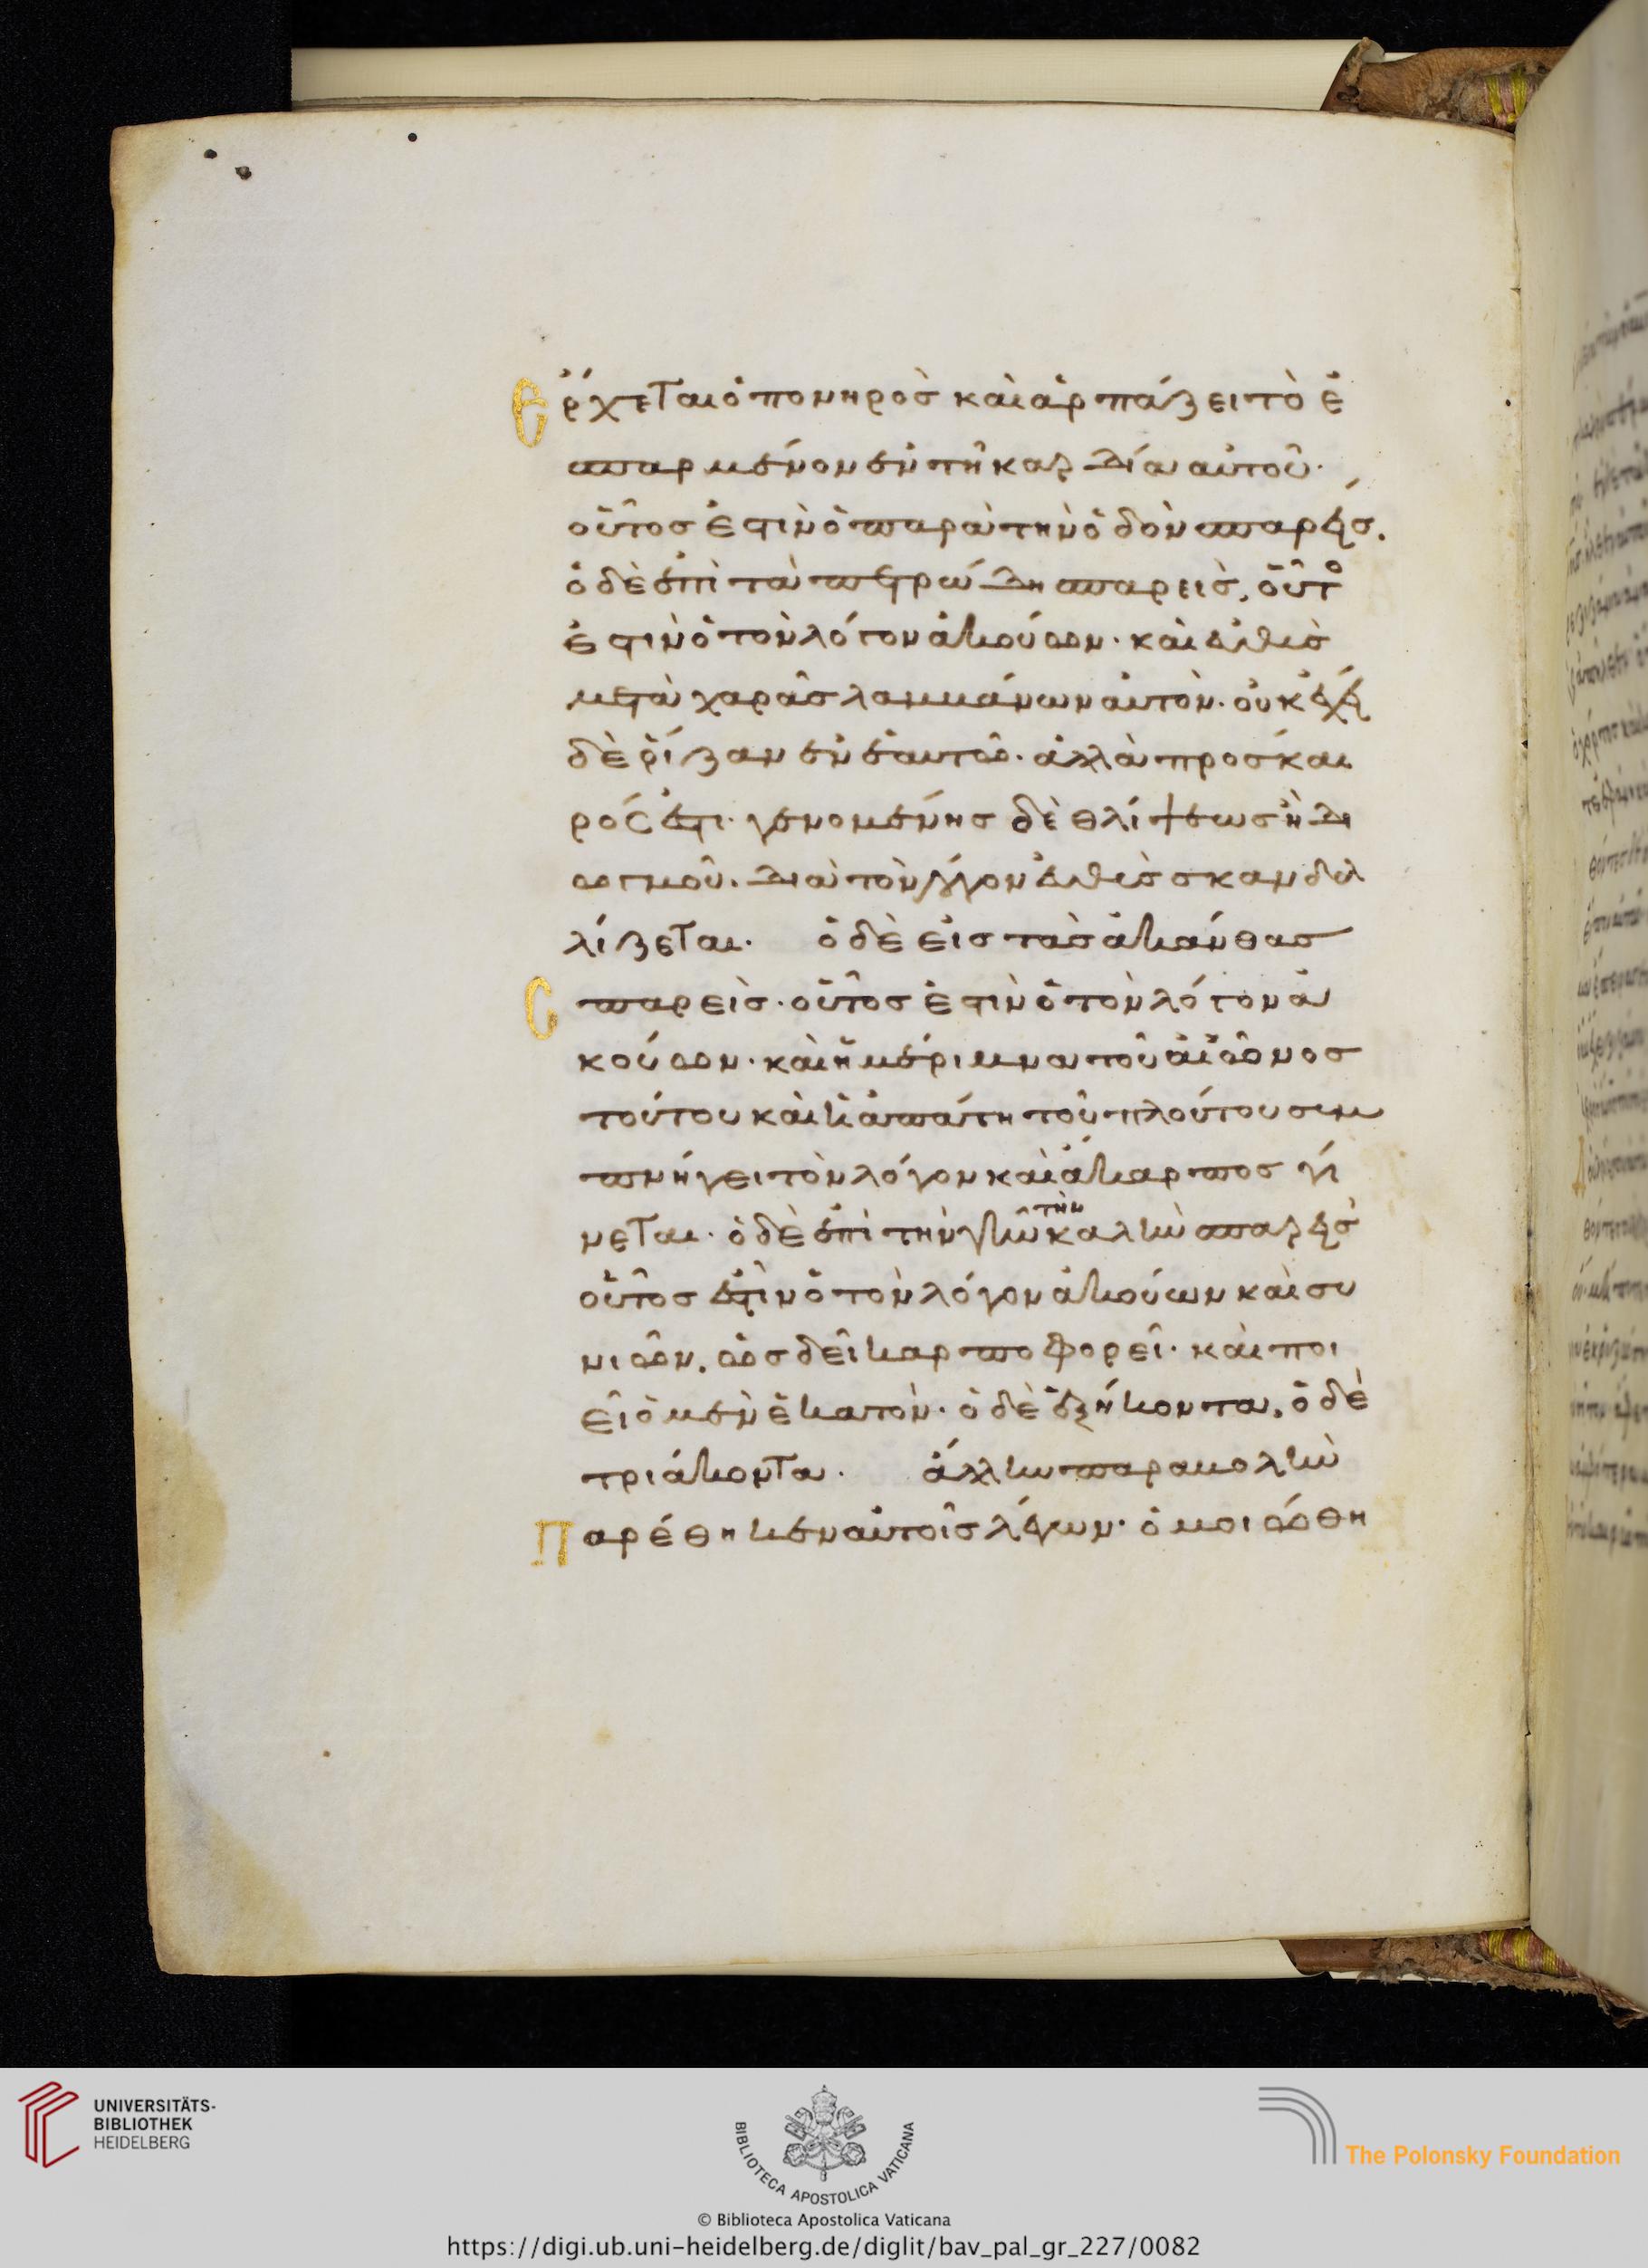 Ἔρχεται ὁ πονηρὸς καὶ ἁρπάζει τὸ ἐ
σπαρμένον ἐν τῇ καρδία αὐτοῦ·
οὗτος ἐστὶν ὁ παρὰ τὴν ὁδὸν σπαρείς.
ὁ δὲ ἐπὶ τὰ πετρώδη σπαρεὶς, οὗτο
ἐστὶν ὁ τὸν λόγον ἀκούων· καὶ εὐθεὶς
μετὰ χαρᾶς λαμμάνων αὐτὸν· οὐκ ἔχει
δὲ ῥίζαν ἐν ἑαυτῶ· ἀλλὰ πρόσκαι
ρός ἐστι· γενομένης δὲ θλίψεως ἢ δι
ωγμοῦ. διὰ τὸν λόγον εὐθεὶς σκανδα
λίζεται· ὁ δὲ εἰς τὰς ἀκάνθας
Σπαρεὶς· οὗτος ἐστὶν ὁ τὸν λόγον ἀ
κούων· καὶ ἡ μέριμνα τοῦ αἰῶνος
τούτου καὶ ἡ ἀπάτη τοῦ πλούτου συμ
πνήγει τὸν λόγον καὶ ἄκαρπος γί
νεται· ὁ δὲ ἐπὶ τὴν γῆν τὴν καλὴν σπαρείς
οὗτος ἐστὶν ὁ τὸν λόγον ἀκούων καὶ συ
νιῶν. ὡς δεῖ καρποφορεῖ· καὶ ποι
εῖ ὁ μὲν ἑκατὸν· ὁ δὲ ἑξήκοντα, ὁ δὲ
τριάκοντα· ἄλλην παραβολὴν
Παρέθηκεν αὐτοῖς λέγων· ὁμοιώθη
UNIVERSITÄTS-
BIBLIOTHEK
HEIDELBERG
BIBLIOTECA APOSTOLICA VATICANA
© Biblioteca Apostolica Vaticana
The Polonsky Foundation
https://digi.ub.uni-heidelberg.de/diglit/bav_pal_gr_227/0082